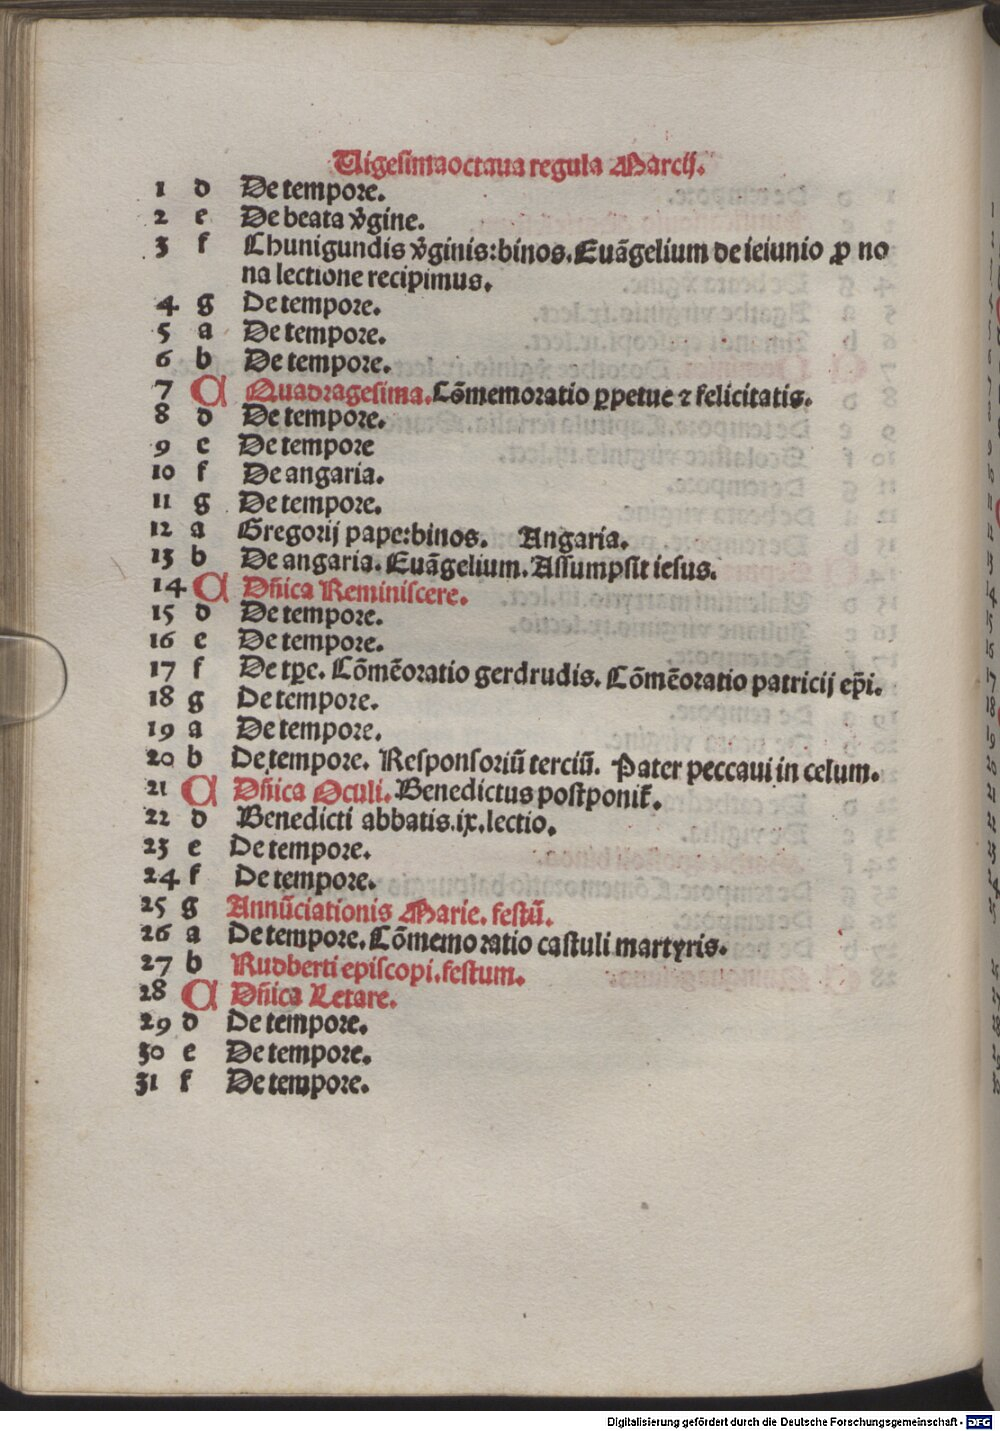 Uigesimaoctaua regula Marcij.
1 d De tempore.
2 e De beata v̓gine.
3 f Chunigundis v̓ginis:binos. Euāgelium de ieiunio ꝓ no
na lectione recipimus.
4 g De tempore.
5 a De tempore.
6 b De tempore.
7 A Quadragesima. Cōmemoratio ꝑpetue ⁊ felicitatis.
8 d De tempore.
9 e De tempore
10 f De angaria.
11 g De tempore.
12 a Gregorij pape:binos. Angaria.
13 b De angaria. Euāgelium. Assumpsit iesus.
14 A Dn̄ica Reminiscere.
15 d De tempore.
16 e De tempore.
17 f De tꝑe. Cōmēoratio gerdrudis. Cōmēoratio patricij ep̄i.
18 g De tempore.
19 a De tempore.
20 b De tempore. Responsoriū terciū. Pater peccaui in celum.
21 C Dn̄ica Oculi. Benedictus postponit᷑.
22 d Benedicti abbatis.ix.lectio.
23 e De tempore.
24 f De tempore.
25 g Annūciationis Marie. festū.
26 a De tempore. Cōmemoratio castuli martyris.
27 b Rudberti episcopi. festum.
28 C Dn̄ica Letare.
29 d De tempore.
30 e De tempore.
31 f De tempore.
Digitalisierung gefördert durch die Deutsche Forschungsgemeinschaft - DFG